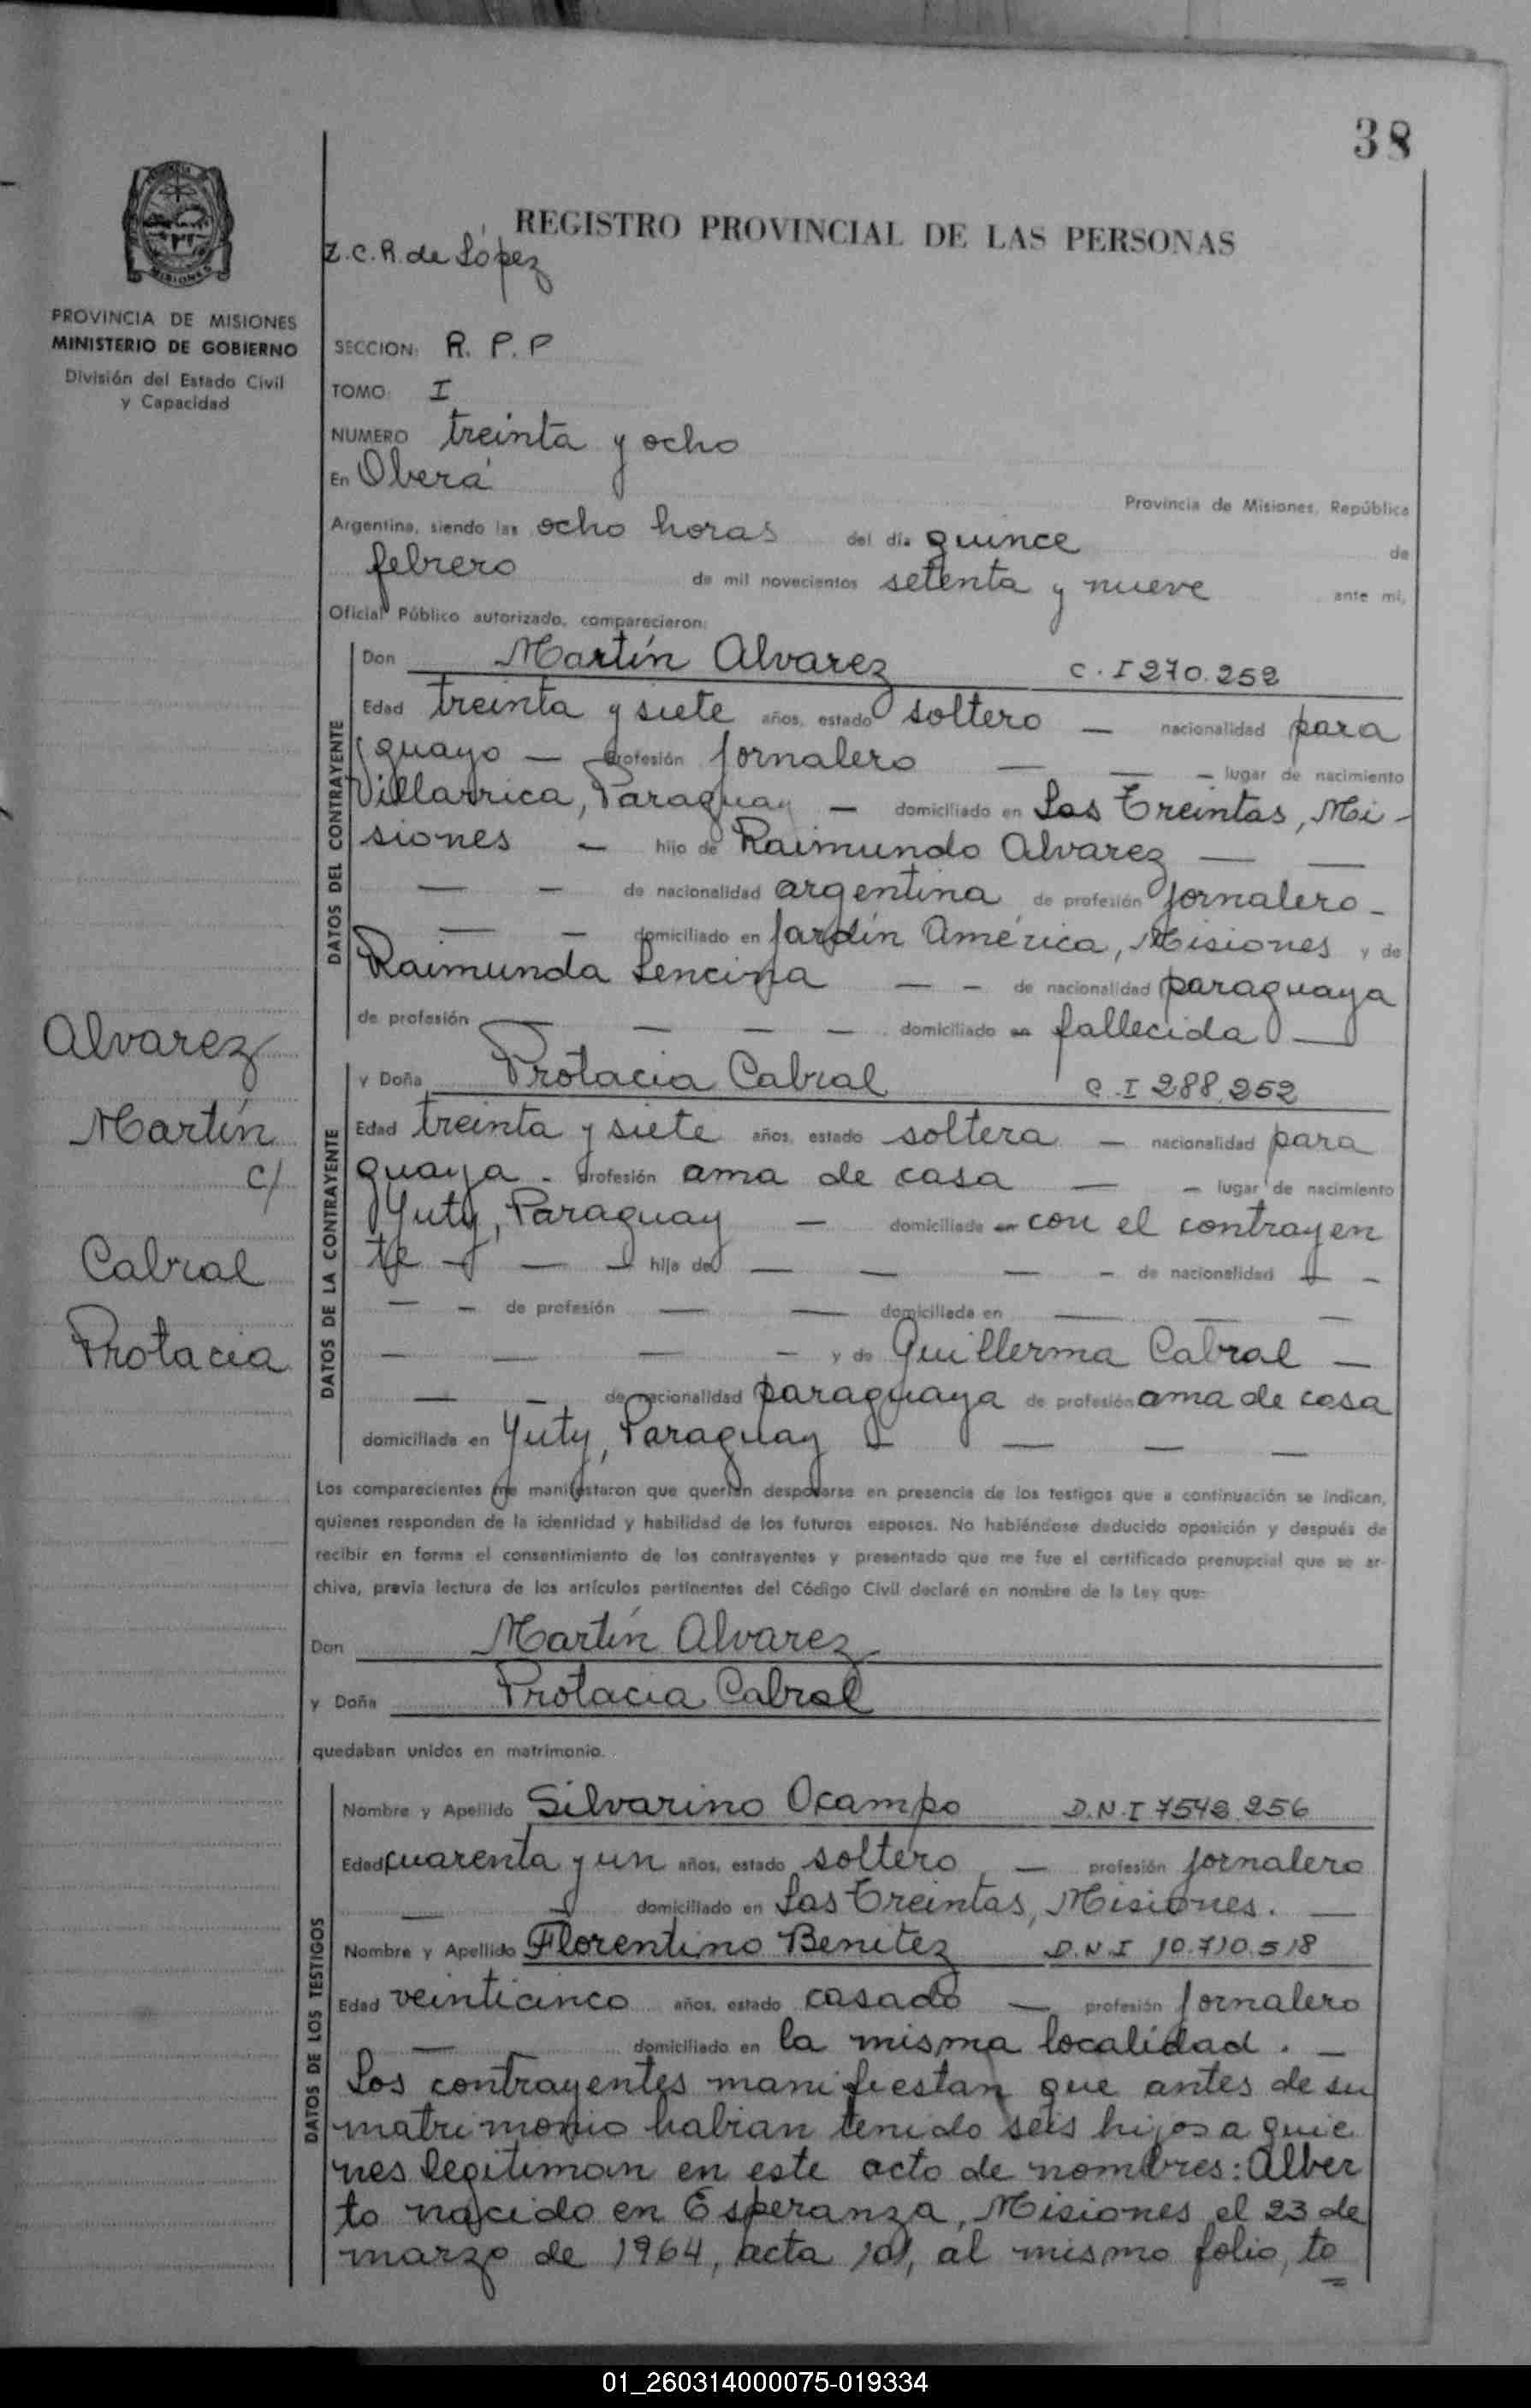 38
REGISTRO PROVINCIAL DE LAS PERSONAS
Z.C.R. de López
MISIONES
PROVINCIA DE MISIONES
MINISTERIO DE GOBIERNO
División del Estado Civil
y Capacidad
SECCION: R. P. P
TOMO: I
NUMERO treinta y ocho
En Oberá
Provincia de Misiones, República
Argentina, siendo las ocho horas del día quince de
febrero de mil novecientos setenta y nueve ante mí,
Oficial Público autorizado, comparecieron:
DATOS DEL CONTRAYENTE
Don Martín Alvarez C. I 270.252
Edad treinta y siete años, estado soltero — nacionalidad para
guayo — profesión jornalero — — — lugar de nacimiento
Villarrica, Paraguay — domiciliado en Los Treintas, Mi-
siones — hijo de Raimundo Alvarez — —
— — de nacionalidad argentina de profesión jornalero -
— — domiciliado en Jardín América, Misiones y de
Raimunda Lencina — — de nacionalidad paraguaya
de profesión — — — — domiciliado en fallecida —
Alvarez
Martín
c/
Cabral
Protacia
DATOS DE LA CONTRAYENTE
y Doña Protacia Cabral C. I 288.252
Edad treinta y siete años, estado soltera — nacionalidad para
guaya - profesión ama de casa — — lugar de nacimiento
Yuty, Paraguay — domiciliada en con el contrayen
te — — — hija de — — — — de nacionalidad — —
— — de profesión — — domiciliada en — — —
— — — — y de Guillerma Cabral —
— — de nacionalidad paraguaya de profesión ama de casa
domiciliada en Yuty, Paraguay — — — —
Los comparecientes me manifestaron que querían desposarse en presencia de los testigos que a continuación se indican,
quienes responden de la identidad y habilidad de los futuros esposos. No habiéndose deducido oposición y después de
recibir en forma el consentimiento de los contrayentes y presentado que me fue el certificado prenupcial que se ar-
chiva, previa lectura de los artículos pertinentes del Código Civil declaré en nombre de la Ley que:
Don Martín Alvarez
y Doña Protacia Cabral
quedaban unidos en matrimonio.
DATOS DE LOS TESTIGOS
Nombre y Apellido Silvarino Ocampo D.N.I 7542.256
Edad cuarenta y un años, estado soltero — profesión jornalero
— — domiciliado en Los Treintas, Misiones. —
Nombre y Apellido Florentino Benitez D.N.I 10.710.518
Edad veinticinco años, estado casado — profesión jornalero
— domiciliado en la misma localidad. —
Los contrayentes manifiestan que antes de su
matrimonio habian tenido seis hijos a quie
nes legitiman en este acto de nombres: Alber
to nacido en Esperanza, Misiones el 23 de
marzo de 1964, acta 101, al mismo folio, to
01_260314000075-019334